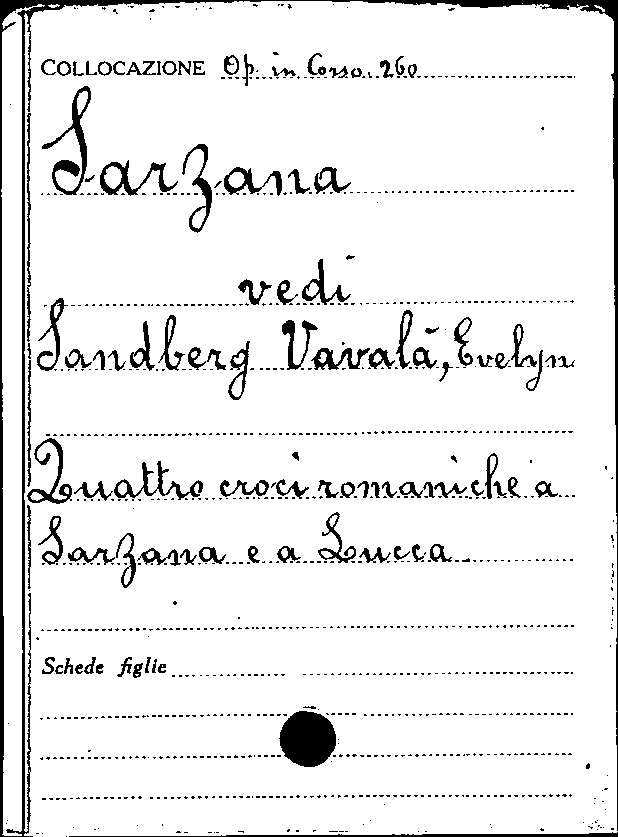 COLLOCAZIONE Op. in Corso. 260
Sarzana
vedi
Sandberg Vavalà, Evelyn
Quattro croci romaniche a
Sarzana e a Lucca
Schede figlie